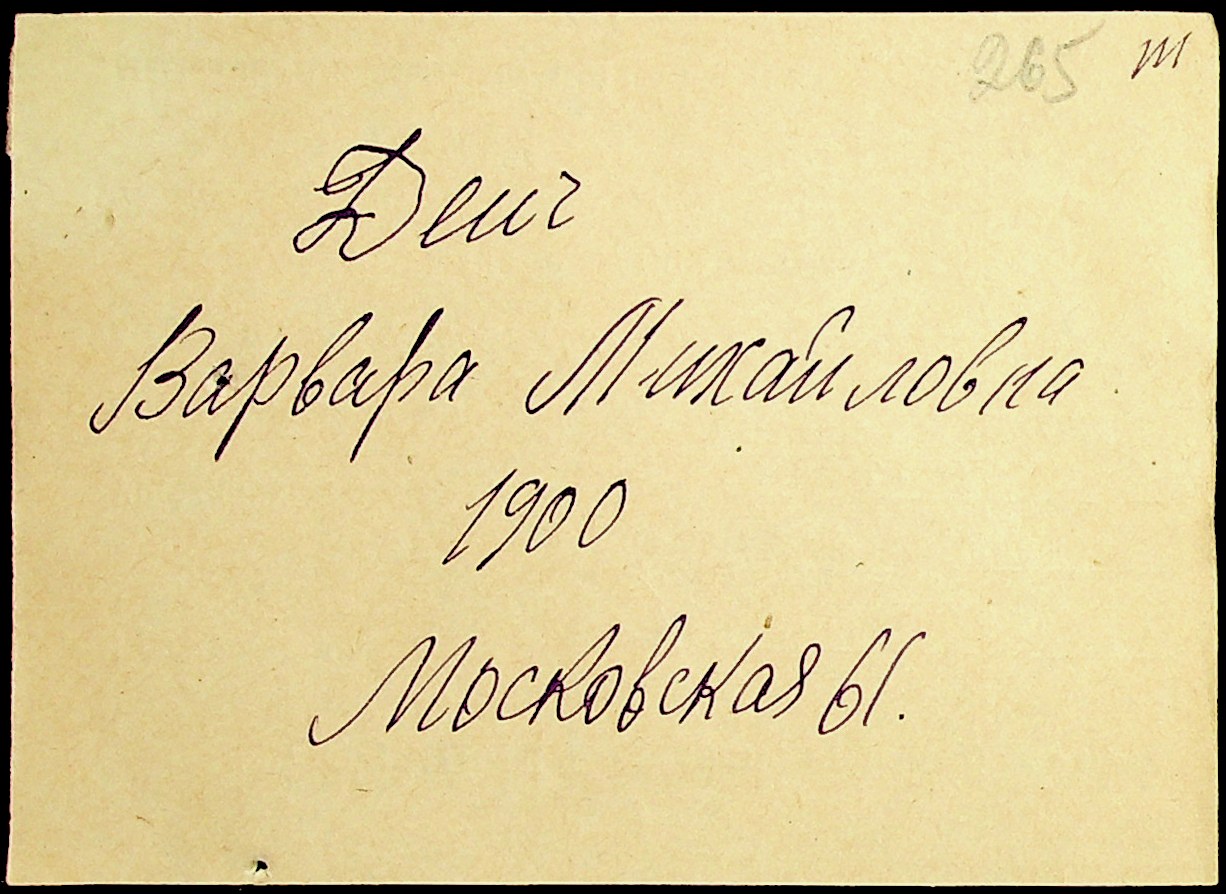 265 т
Дейч
Варвара Михайловна
1900
Московская 61.